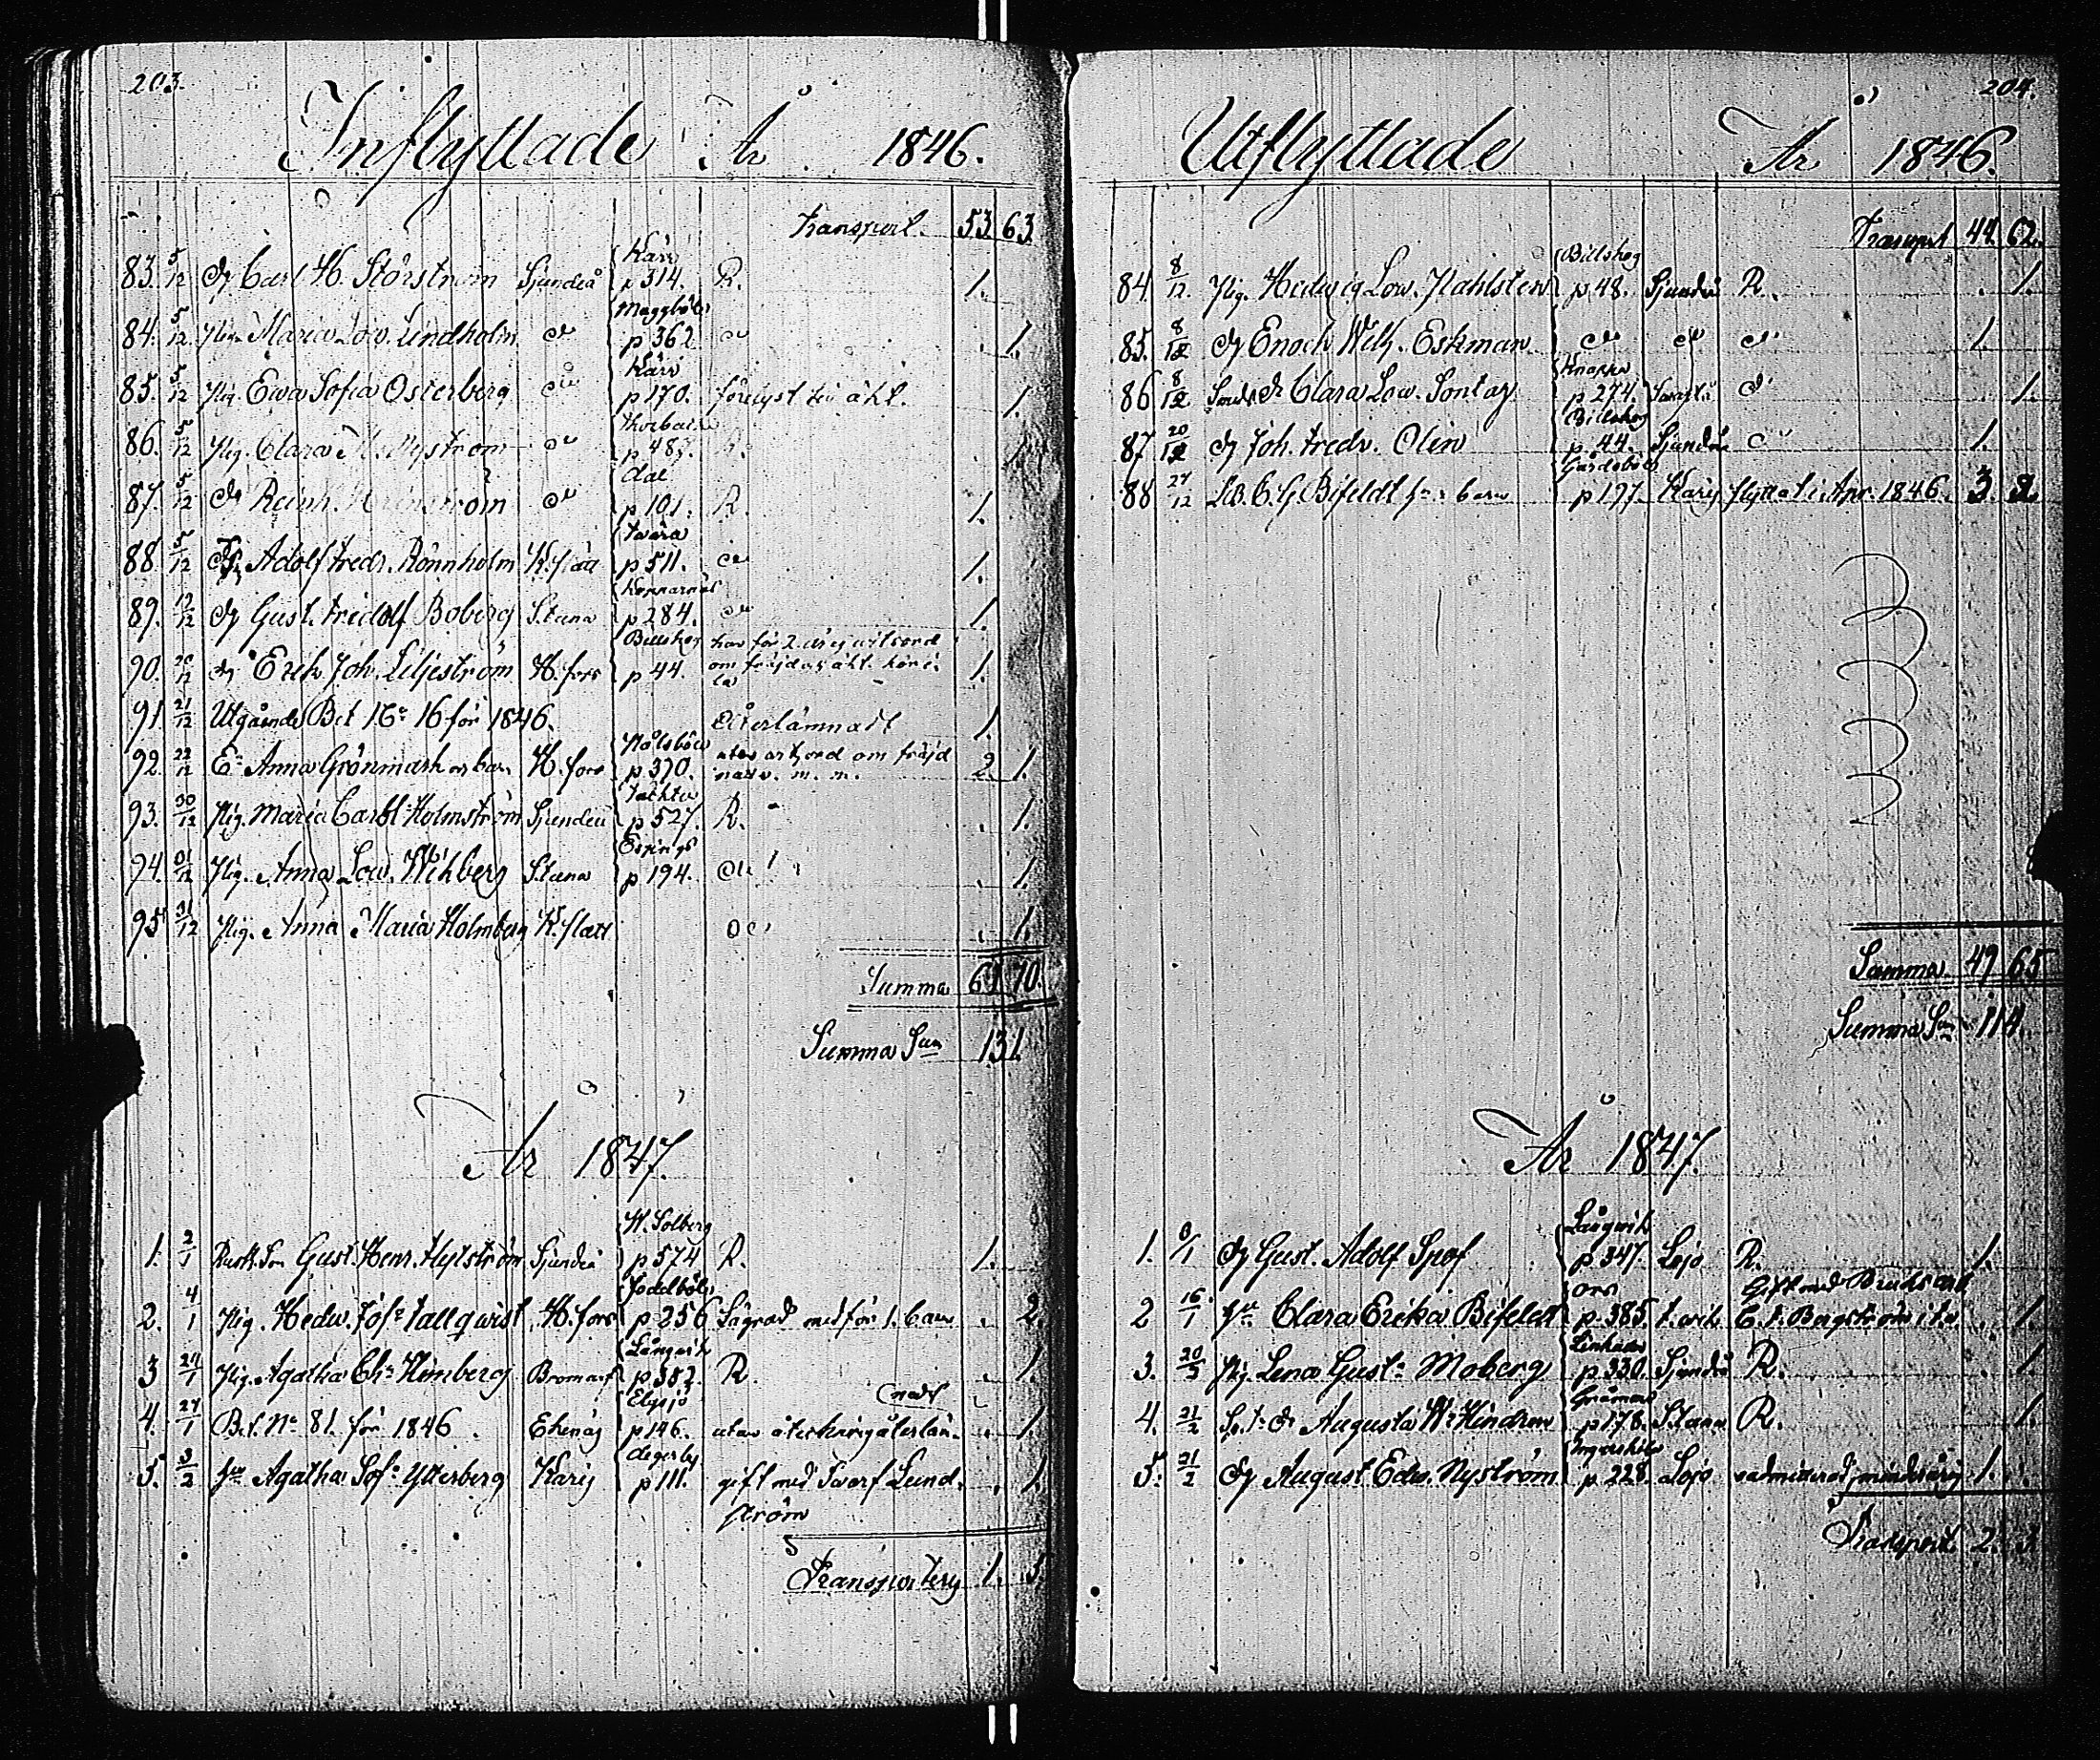 203.
Inflyttade År 1846.
Transport. 53 63
83. 5/12 Dg Carl H. Störström Sjundeå Käri p 314. R. 1.
84. 5/12 Pig. Maria Lov. Lindholm do Maggböle p 362 do 1.
85. 5/12 Pig. Ewa Sofia Osterberg do Käri p 170. förlyst till äkt. 1.
86. 5/12 Pig. Clara M. Nyström do p 487. 1.
87. 5/12 Dr Reinh. do Dal p 101. R. 1.
88. 5/12 Adolf Fredr. Rönnholm K.slätt Svära p 511. do 1.
89. 19/12 Dg Gust. Fridolf Boberg S.tuna Kopparnäs p 284. do 1.
90. 20/12 Dg Erik Joh. Liljeström H.fors Billskog p 44. har för 2. år ej vitsord
om fräjd och äkt. 1.
91. 21/12 Utgående Bet No 16 för 1846. återlämnadt 1.
92. 22/12 Ea Anna Grönmark o. barn H.fors p 370. utan om fräjd
nadv. m. m. 2. 1.
93. 30/12 Pig. Maria Carol: Holmström Sjundeå Täckter p 527. R. 1.
94. 31/12 Pig. Anna Lov. Wikberg S.tuna Espings p 194. do 1.
95 31/12 Pig. Anna Maria Holmberg K.slätt do 1.
Summa 61 70.
Summa Sum 131.
År 1847.
1. 2/1 Rusth. Son Gust. Henr. Hylström Sjundeå W. Solberg p 574 R. 1.
2. 4/1 Pig. Hedv. Jos: Tallqvist H.fors Joddböle p 256 Lägrad medför 1. barn 2.
3 24/1 Pig. Agatha Ch: Himberg Bromarf Långvik p 387. R. 1.
4. 27/1 Bet. No 81. för 1846. Ekenäs Elgsjö p 146. utan återläm-
nadt 1.
5. 3/2 Agatha Sof: Ytterberg Karis Degerby p 111. gift med Lund-
ström 1.
Transporteras 1. 5.
204.
Utflyttade År 1846.
Transport 44. 62.
84. 8/12. Pig. Hedvig Lov. Dahlsten Billskog p 48. Sjundeå R. 1.
85. 8/12 Dg Enoch Wilh. Eskman do do do 1.
86 8/12 Clara Lov. Sontag Knapp p 274. do 1.
87. 20/12 Dg Joh. Fredr. Olin Billskog p 44. Sjundeå do 1.
88 27/12 C. G. Bifeldt barn Gårdsböle p 197. Karis flyttat i Apr. 1846. 3. 2.
Summa 49 65
Summa Sum 114.
År 1847.
1. 8/1 Dg Gust. Adolf Spof Långvik p 347. Lojo R. 1.
2 16/1 Clara Erika Bifeldt Ors p 385. Gift med
C. F. Bergström 1.
3. 20/2 Pig. Lena Gust: Moberg Linkulla p 330. Sjundeå R. 1.
4. 21/2 Augusta W: Hindron p 178. S.tuna R. 1.
5. 21/2 Dg August Edv. Nyström Ingarskila p 228. Lojo oadmitterad, minderårig 1.
Transport. 2. 3.